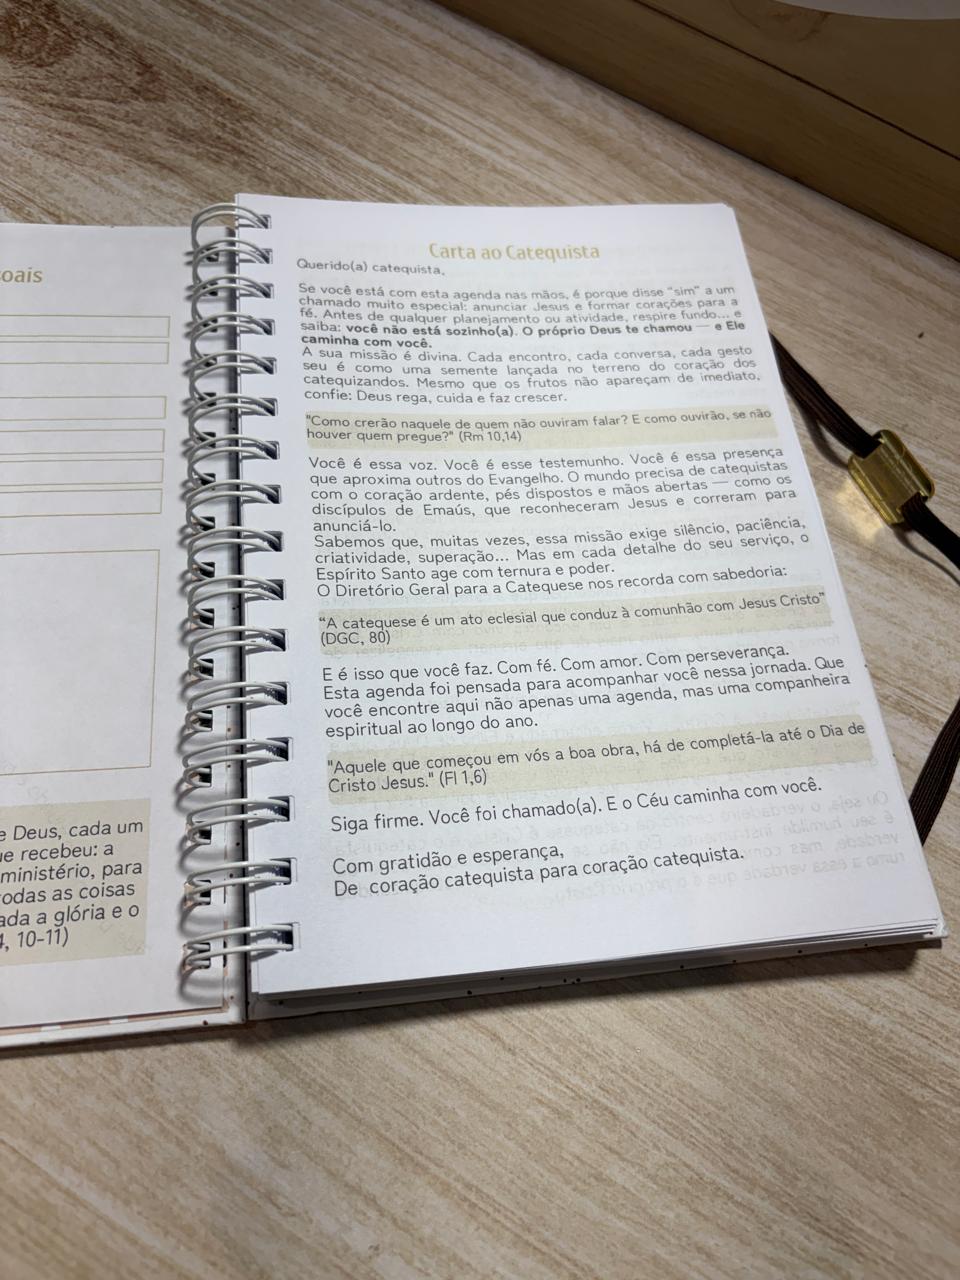 oais
e Deus, cada um
ue recebeu: a
ministério, para
odas as coisas
ada a glória e o
4, 10-11)
Carta ao Catequista
Querido(a) catequista,
Se você está com esta agenda nas mãos, é porque disse “sim” a um
chamado muito especial: anunciar Jesus e formar corações para a
fé. Antes de qualquer planejamento ou atividade, respire fundo... e
saiba: você não está sozinho(a). O próprio Deus te chamou — e Ele
caminha com você.
A sua missão é divina. Cada encontro, cada conversa, cada gesto
seu é como uma semente lançada no terreno do coração dos
catequizandos. Mesmo que os frutos não apareçam de imediato,
confie: Deus rega, cuida e faz crescer.
"Como crerão naquele de quem não ouviram falar? E como ouvirão, se não
houver quem pregue?" (Rm 10,14)
Você é essa voz. Você é esse testemunho. Você é essa presença
que aproxima outros do Evangelho. O mundo precisa de catequistas
com o coração ardente, pés dispostos e mãos abertas — como os
discípulos de Emaús, que reconheceram Jesus e correram para
anunciá-lo.
Sabemos que, muitas vezes, essa missão exige silêncio, paciência,
criatividade, superação... Mas em cada detalhe do seu serviço, o
Espírito Santo age com ternura e poder.
O Diretório Geral para a Catequese nos recorda com sabedoria:
“A catequese é um ato eclesial que conduz à comunhão com Jesus Cristo”
(DGC, 80)
E é isso que você faz. Com fé. Com amor. Com perseverança.
Esta agenda foi pensada para acompanhar você nessa jornada. Que
você encontre aqui não apenas uma agenda, mas uma companheira
espiritual ao longo do ano.
"Aquele que começou em vós a boa obra, há de completá-la até o Dia de
Cristo Jesus." (Fl 1,6)
Siga firme. Você foi chamado(a). E o Céu caminha com você.
Com gratidão e esperança,
De coração catequista para coração catequista.